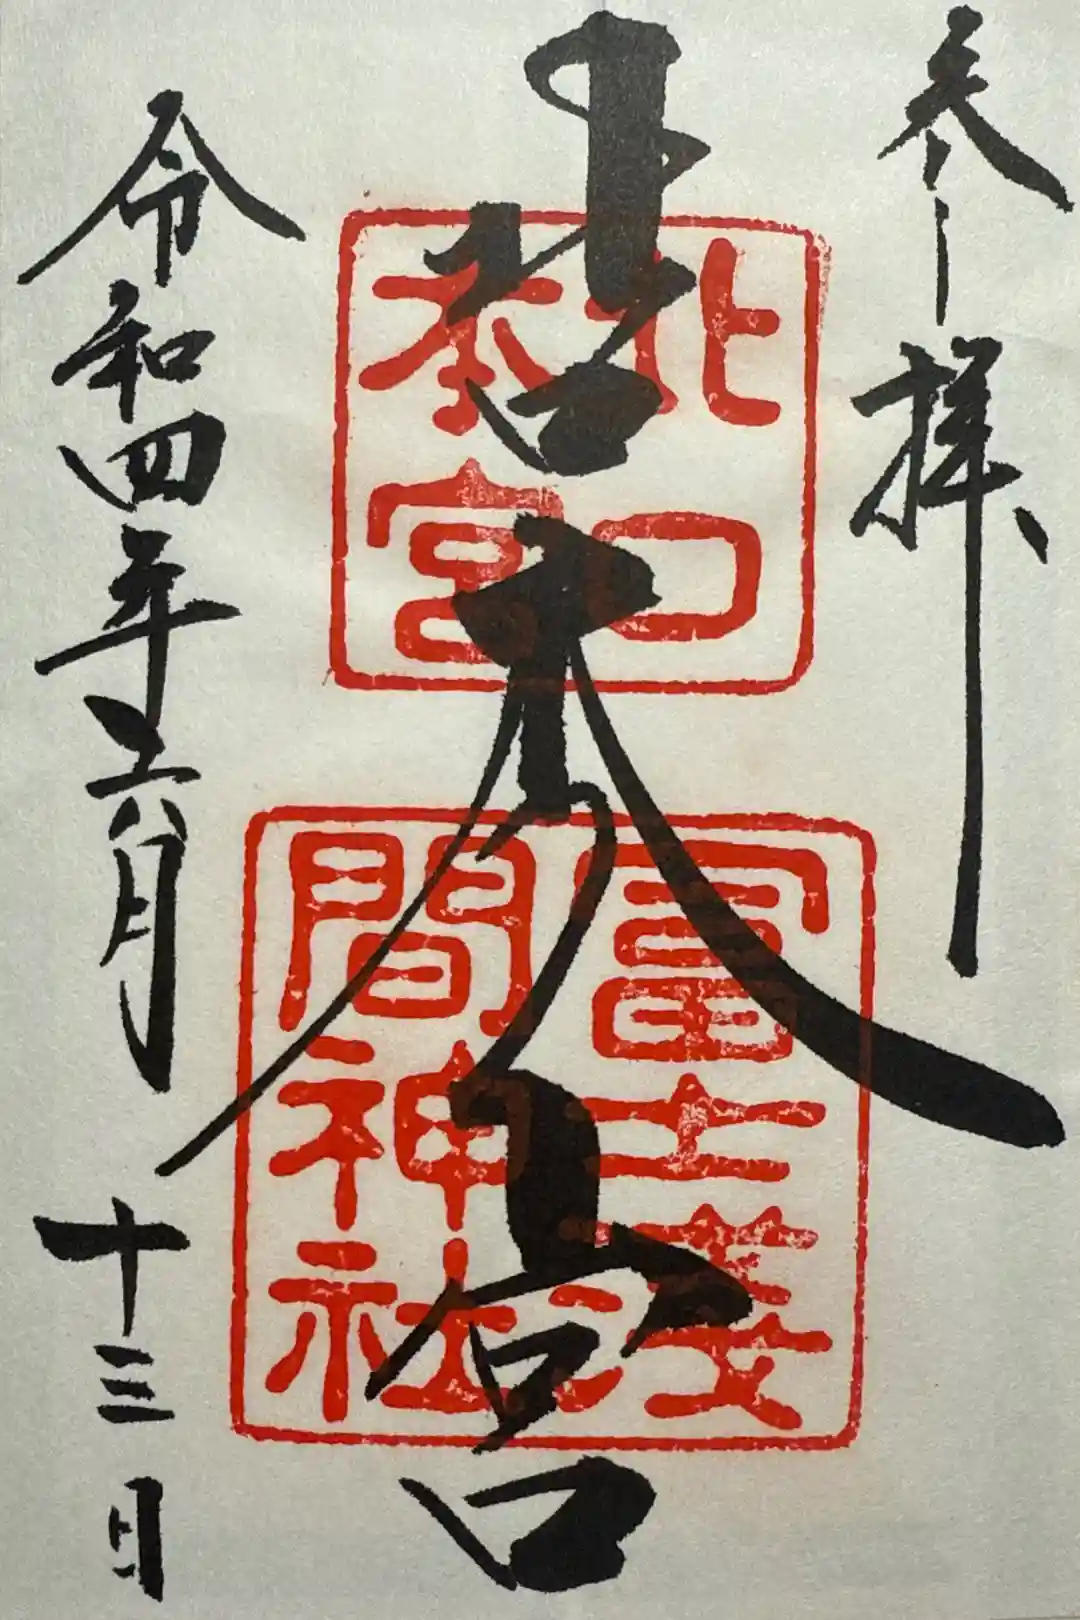 参拝
北口本宮
北口
本宮
冨士淺
間神社
令和四年六月十三日